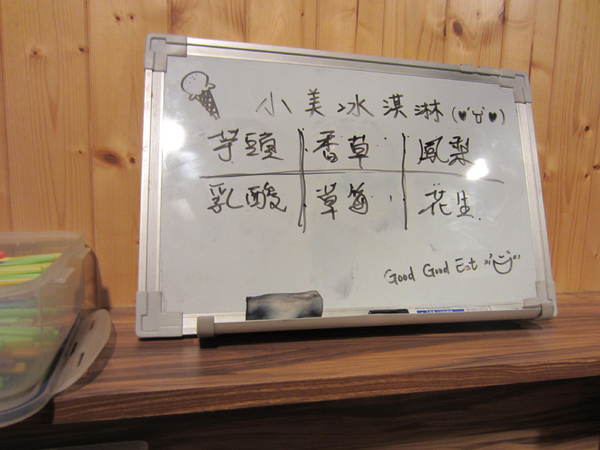 小美冰淇淋(♥'ㅂ'♥)
芋頭 香草 鳳梨
乳酸 草莓 花生
Good Good Eat